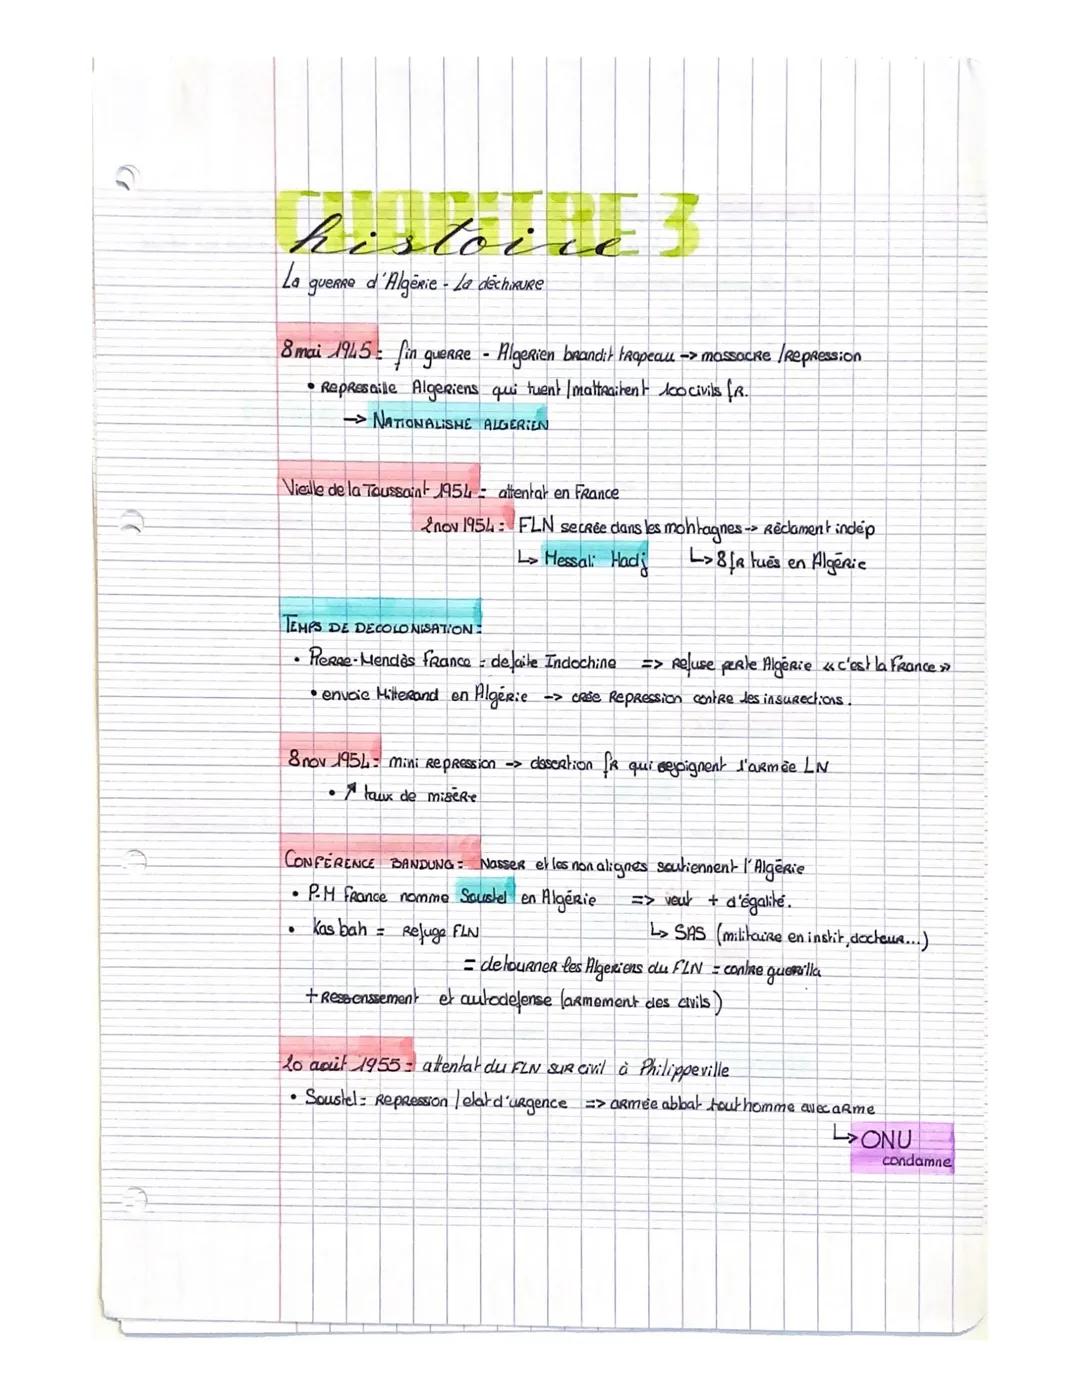 CHAPITRE 3
histoire
La guerre d'Algérie - La déchirure
8 mai 1945 : fin guerre - Algerien brandit trapeau -> massacre / repression
• Represaille Algeriens qui tuent / maltraitent 100 civils fr.
-> NATIONALISME ALGERIEN
Vieille de la Toussaint 1954 = attentat en France
2 nov 1954 : FLN secrée dans les mohtagnes -> réclament indép
↳ Messali Hadj ↳ 8 fr tués en Algérie
TEMPS DE DECOLONISATION :
• Pierre-Mendès France = defaite Indochine => refuse perte Algérie « c'est la France »
• envoie Mitterand en Algérie -> crée repression contre les insurections.
8 nov 1954 : mini repression -> desertion fr qui rejoignent l'armée LN
• ↗ taux de misère
CONFÉRENCE BANDUNG = Nasser et les non alignés soutiennent l'Algérie
• P-M France nomme Soustel en Algérie => veut + d'égalité.
• Kasbah = Refuge FLN ↳ SAS (militaire en instit, docteur...)
= detourner les Algeriens du FLN = contre guerilla
+ et autodefense (armement des civils)
20 août 1955 = attentat du FLN sur civil à Philippeville
• Soustel = Repression / etat d'urgence => armée abbat tout homme avec arme
↳ ONU
condamne